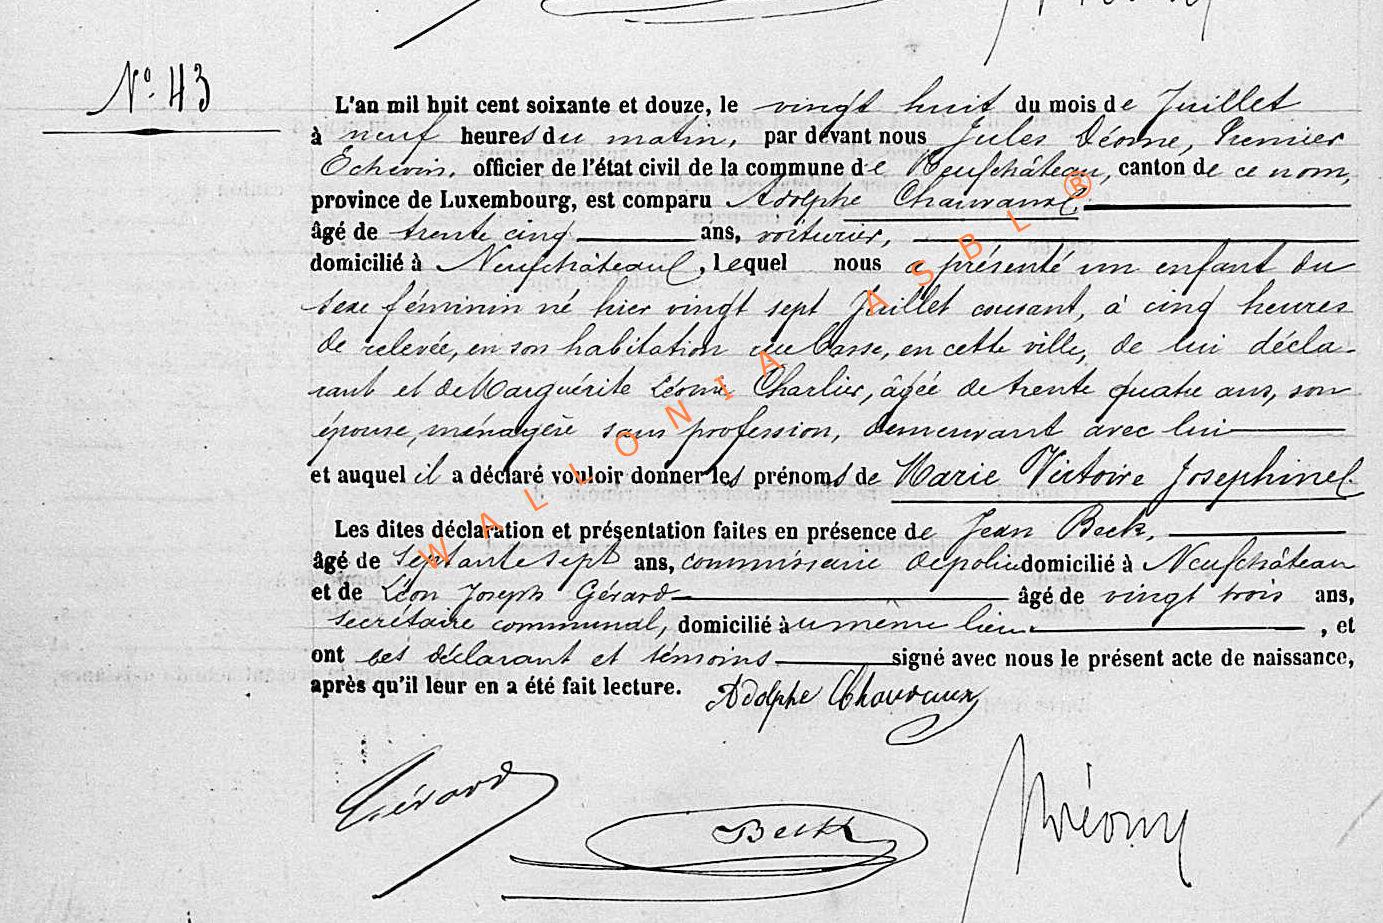 N° 43
L'an mil huit cent soixante et douze, le vingt huit du mois de Juillet
à neuf heures du matin, par devant nous Jules Déome, Premier
Echevin, officier de l'état civil de la commune de Neufchâteau, canton de ce nom,
province de Luxembourg, est comparu Adolphe Chauvaux
âgé de trente cinq ans, voiturier,
domicilié à Neufchâteau, lequel nous a présenté un enfant du
sexe féminin né hier vingt sept Juillet courant, à cinq heures
de relevée, en son habitation rue basse, en cette ville, de lui décla-
rant et de Marguérite Charlier, âgée de trente quatre ans, son
épouse, ménagère sans profession, demeurant avec lui
et auquel il a déclaré vouloir donner les prénoms de Marie Victoire Josephine
Les dites déclaration et présentation faites en présence de Jean Beck,
âgé de septante sept ans, commissaire de police domicilié à Neufchâteau
et de Léon Joseph Gérard âgé de vingt trois ans,
secrétaire communal, domicilié au même lieu , et
ont ses déclarant et témoins signé avec nous le présent acte de naissance,
après qu'il leur en a été fait lecture. Adolphe Chauvaux
Gérard
Beck
WALLONIA ASBL ®